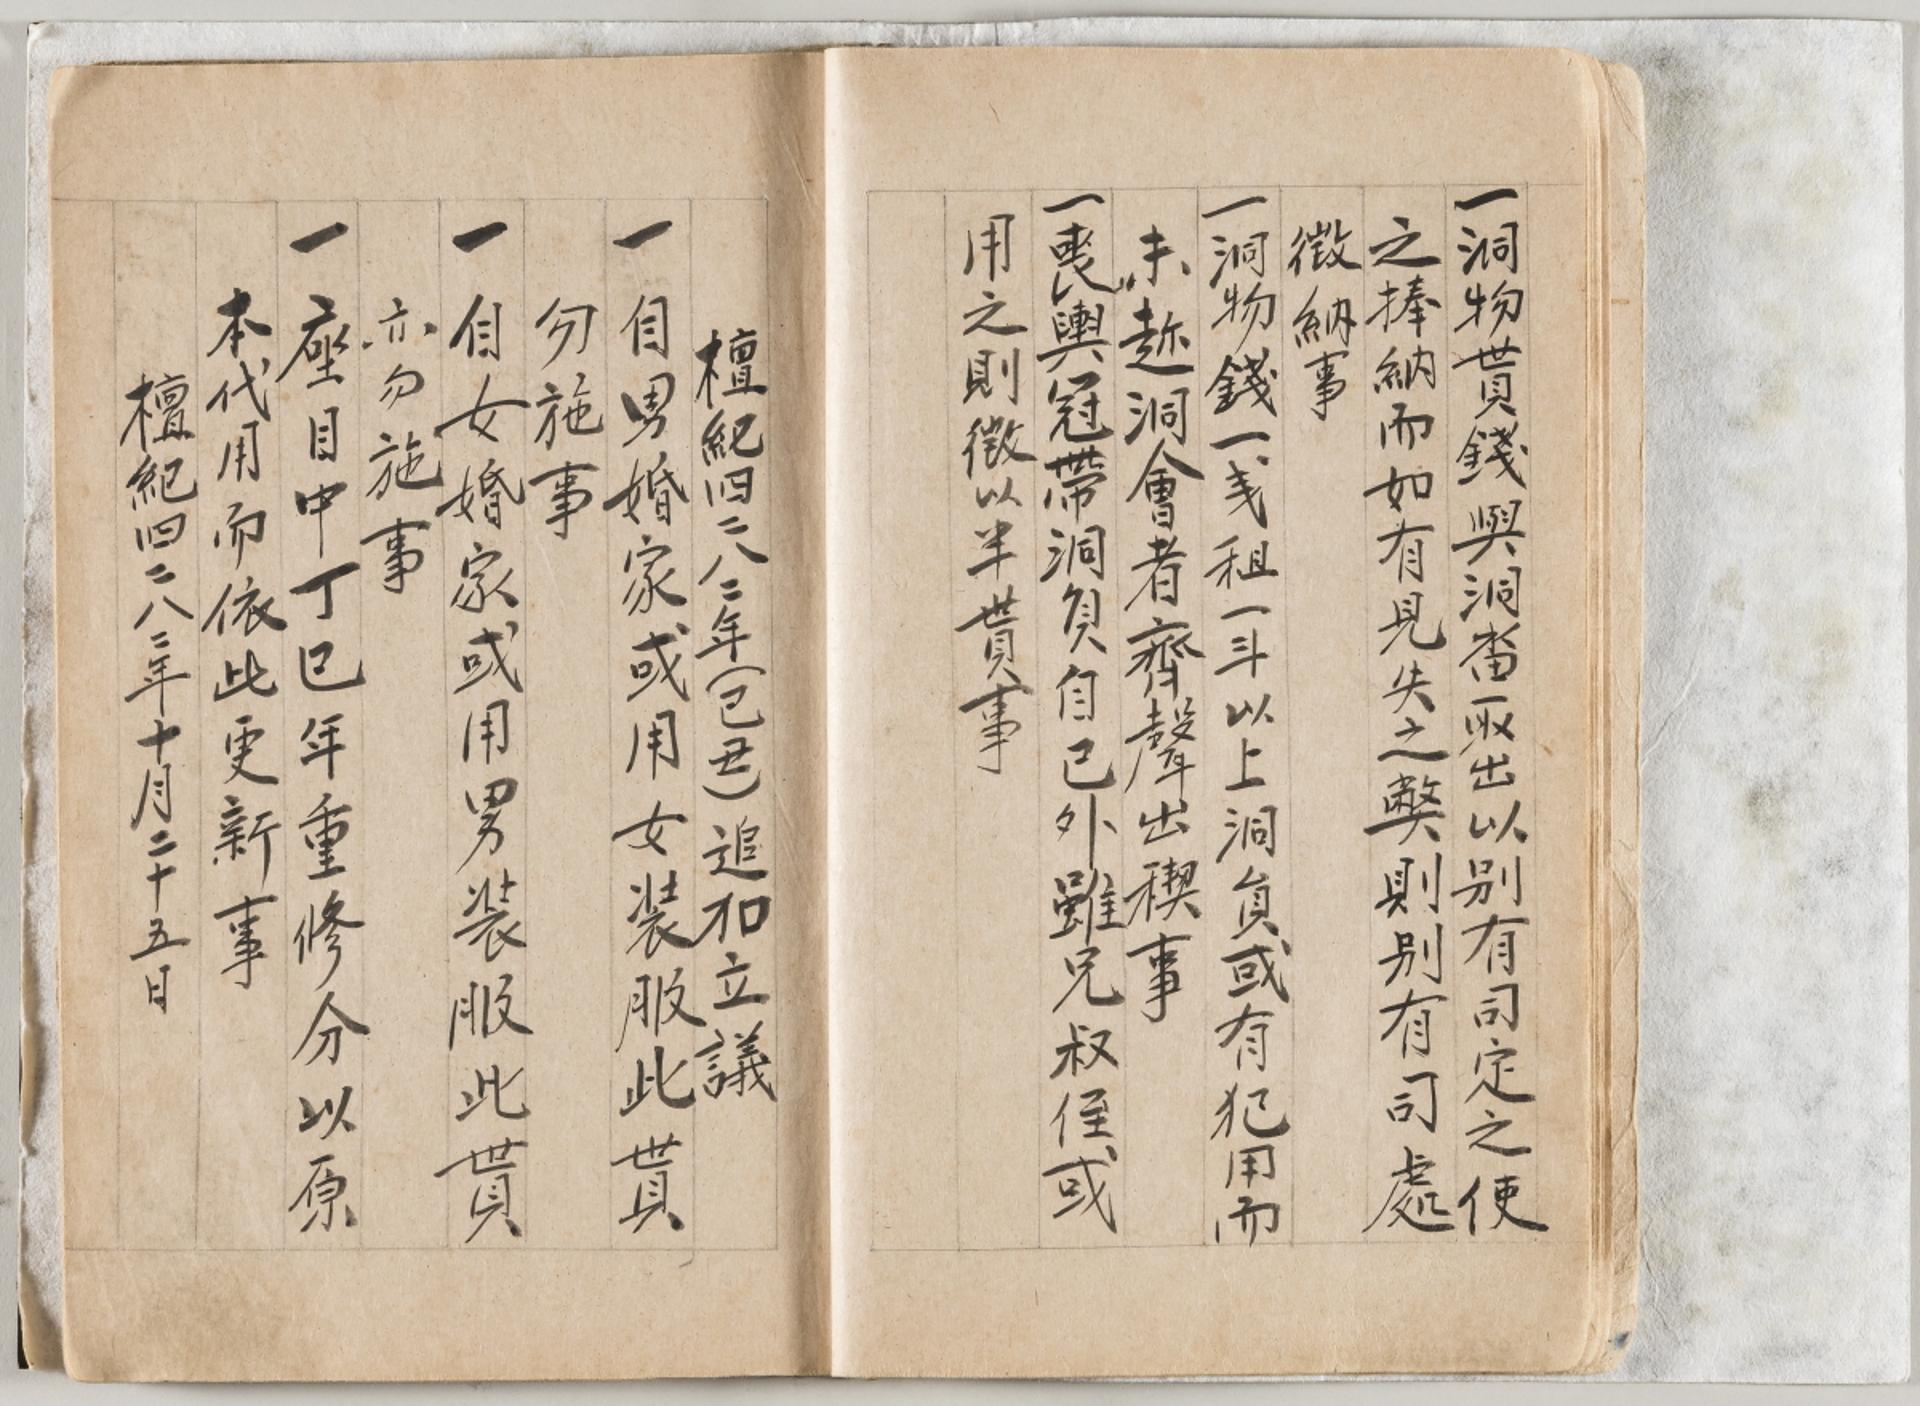 一洞物貰錢與洞畓所出以別有司定之使
之捧納而如有見失之弊則別有司處
徵納事
一洞物錢一戔租一斗以上洞員或有犯用而
未赴洞會者齊聲出稧事
一喪輿冠帶洞員自己外雖兄叔侄或
用之則徵以半貰事
檀紀四二八二年(己丑)追加立議
一 自男婚家或用女裝服此貰
勿施事
一 自女婚家或用男裝服此貰
亦勿施事
一 座目中丁巳年重修分以原
本代用而依此更新事
檀紀四二八三年十月二十五日